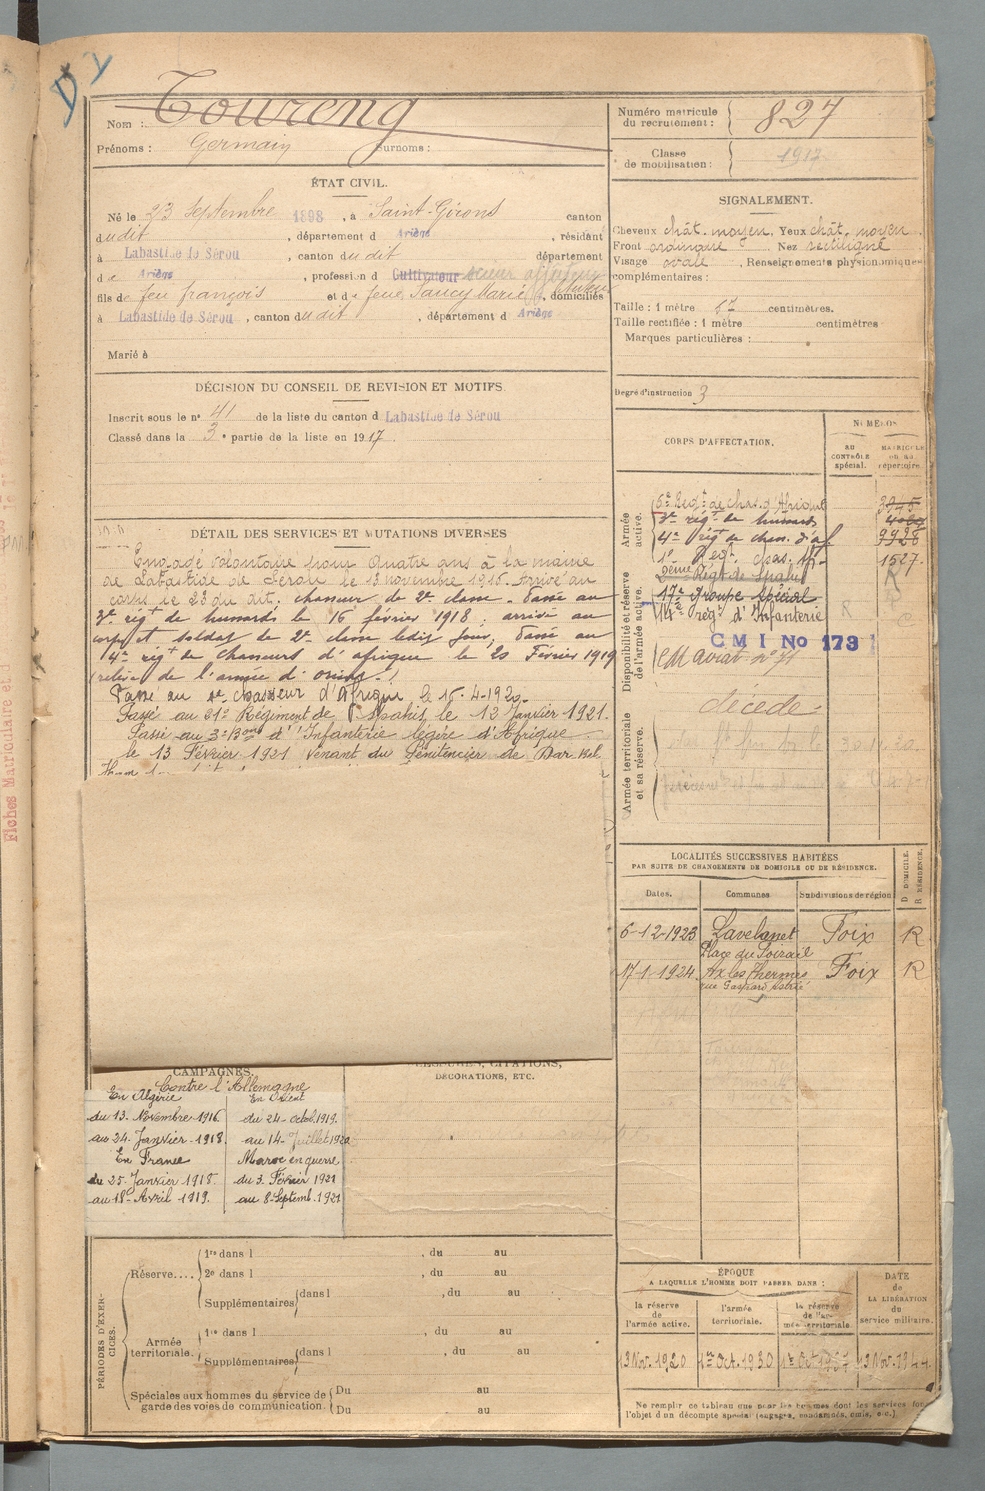 D
Nom : Toureng
Prénoms : Germain Surnoms :
Numéro matricule
du recrutement : 827
Classe
de mobilisation : 1912
ÉTAT CIVIL.
Né le 23 Septembre 1898, à Saint-Girons canton
dudit, département d Ariège, résidant
à Labastide de Sérou, canton dudit département
de Ariège, profession d Cultivateur scieur
fils de feu françois et de feue Saucy Marie, domiciliés
à Labastide de Sérou, canton dudit, département d Ariège
Marié à
SIGNALEMENT.
Cheveux chât. moyen, Yeux chât. moyen
Front ordinaire Nez rectiligne
Visage ovale, Renseignements physionomiques
complémentaires :
Taille : 1 mètre centimètres.
Taille rectifiée : 1 mètre centimètres
Marques particulières :
Degré d'instruction 3
DÉCISION DU CONSEIL DE REVISION ET MOTIFS.
Inscrit sous le n° 41 de la liste du canton d Labastide de Sérou
Classé dans la 3e partie de la liste en 1917.
DÉTAIL DES SERVICES ET MUTATIONS DIVERSES
Engagé volontaire pour Quatre ans à la mairie
de Labastide de Sérou le 13 novembre 1916. Arrivé au
corps le 23 du dit. chasseur de 2e classe. Passé au
3e régt de hussards le 16 février 1918 ; arrivé au
corps et soldat de 2e classe ledit jour, Passé au
4e régt de chasseurs d'afrique le 20 Février 1919
(relève de l'armée d'orient)
Passé au 1er chasseur d'Afrique le 15-4-1920.
Passé au 21e Régiment de Spahis le 12 Janvier 1921.
Passé au 3e Bon d'Infanterie légère d'Afrique
le 13 Février 1921 venant du Pénitencier de Dar Bel
CORPS D'AFFECTATION.
NUMÉROS
AU
CONTRÔLE
spécial.
MATRICULE
ou au
répertoire.
Armée
active.
5e Régt de chas. d'Afrique 3945
3e régt de hussards
4e régt de chass. d'af 9928
1er Regt. chas. Af- 1527
2ème Régt de Spahis
Disponibilité et réserve
de l'armée active.
17e groupe spécial
14e régt d'Infanterie R
C M I No 173
CM aviat n° 71
décédé
Armée territoriale
et sa réserve.
LOCALITÉS SUCCESSIVES HABITÉES
PAR SUITE DE CHANGEMENTS DE DOMICILE OU DE RÉSIDENCE.
Dates. Communes Subdivisions de région
D DOMICILE.
R RÉSIDENCE.
6-12-1923 Lavelanet Foix R
Place du
17-1-1924 Ax les Thermes Foix R
rue Gaspard Astrié
CAMPAGNES.
Contre l'Allemagne
En Algérie
du 13. Novembre 1916
au 24. Janvier 1918.
En France
du 25. Janvier 1918.
au 18. Avril 1919.
En Orient
du 24- octob. 1919.
au 14- Juillet 1920
Maroc en guerre
du 3. Février 1921
au 8. Septemb. 1921
BLESSURES, CITATIONS,
DÉCORATIONS, ETC.
PÉRIODES D'EXERCICES.
Réserve....
1re dans l , du au
2e dans l , du au
Supplémentaires dans l , du au
Armée
territoriale.
1re dans l , du au
Supplémentaires dans l , du au
Spéciales aux hommes du service de
garde des voies de communication.
Du au
Du au
ÉPOQUE
A LAQUELLE L'HOMME DOIT PASSER DANS :
la réserve
de
l'armée active.
l'armée
territoriale.
la réserve
de l'ar-
mée territoriale.
DATE
de
LA LIBÉRATION
du
service militaire.
13 Nov. 1920 1er Oct. 1930 1er Oct 1937 13 Nov. 1944
Ne remplir ce tableau que pour les hommes dont les services font
l'objet d'un décompte spécial (engagés, condamnés, omis, etc.).
Fiches Matriculaire et